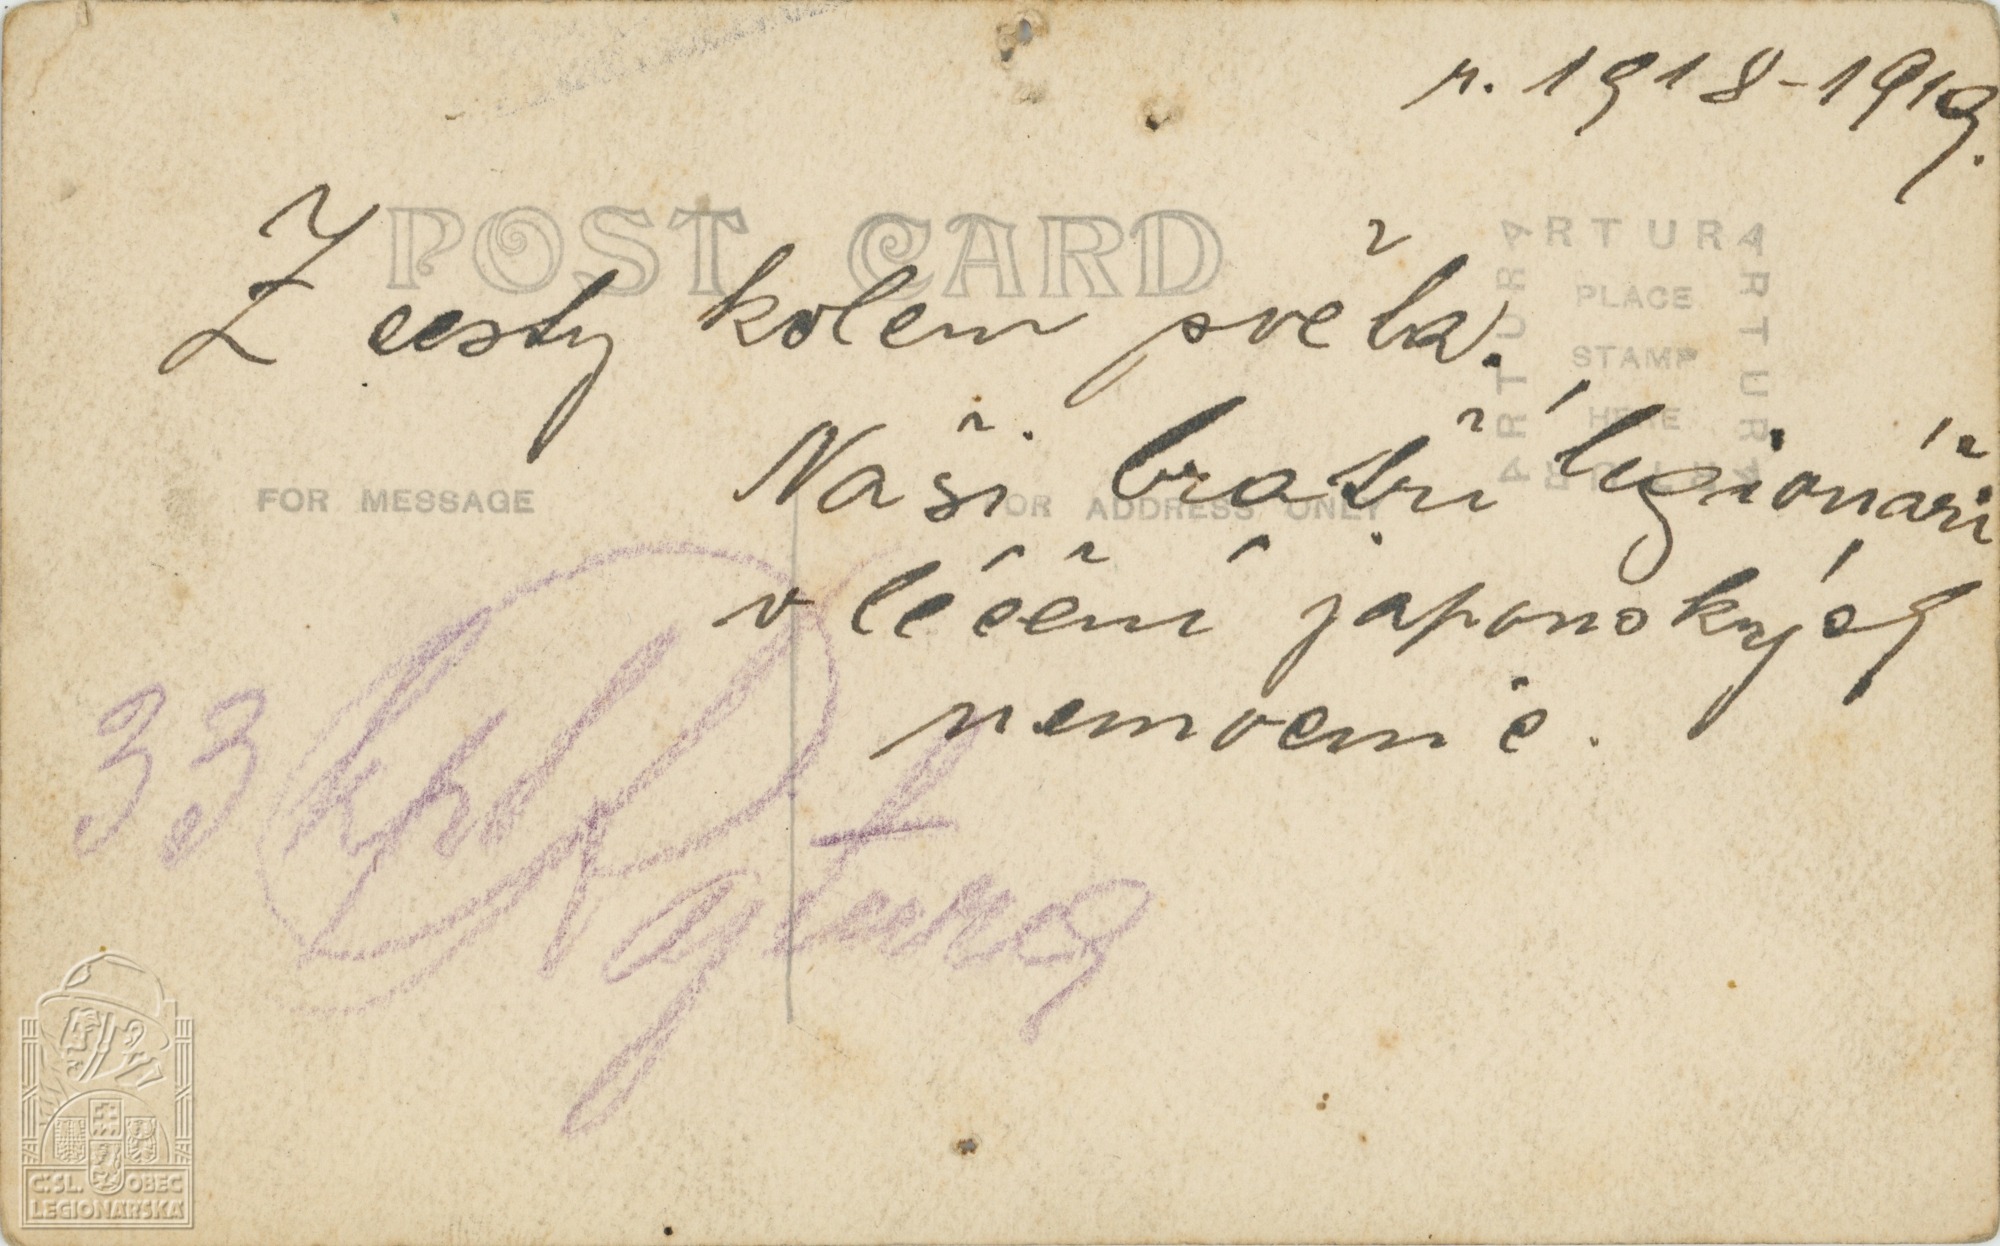 r. 1918-1919.
POST CARD
Z cesty kolem světa.
ARTURA
ARTURA
ARTURA
ARTURA
PLACE
STAMP
HERE
Naši bratří legionáři
FOR MESSAGE
FOR ADDRESS ONLY
v léčení japonských
nemocnic.
33
ČSL. OBEC
LEGIONÁŘSKÁ